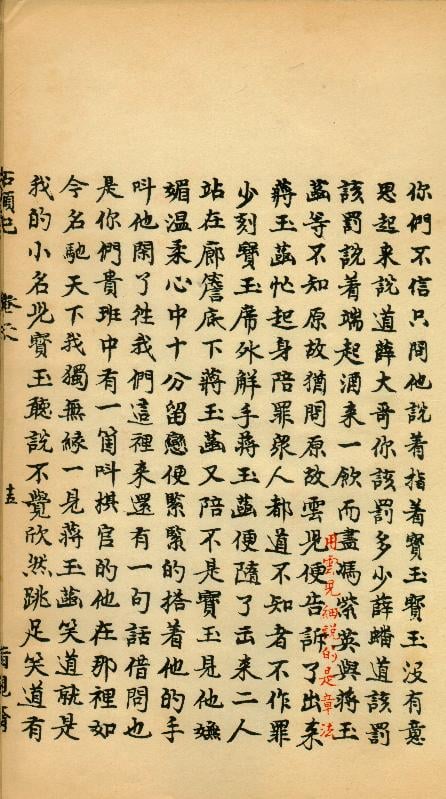 你們不信只問他說着指着寶玉寶玉沒有意
思起来說道薛大哥你該罰多少薛蟠道該罰
該罰說着端起酒来一飲而盡馮紫英與蔣玉
菡等不知原故猶問原故雲兒便告訴了出来
用雲兒細說的是章法
蔣玉菡忙起身陪罪衆人都道不知者不作罪
少刻寶玉席外解手蔣玉菡便隨了出来二人
站在廊簷底下蔣玉菡又陪不是寶玉見他嫵
媚温柔心中十分留戀便緊緊的搭着他的手
叫他閑了往我們這裡来還有一句話借問也
是你們貴班中有一箇叫棋官的他在那裡如
今名馳天下我獨無緣一見蔣玉菡笑道就是
我的小名兒寶玉聽說不覺欣然跳足笑道有
石頭記